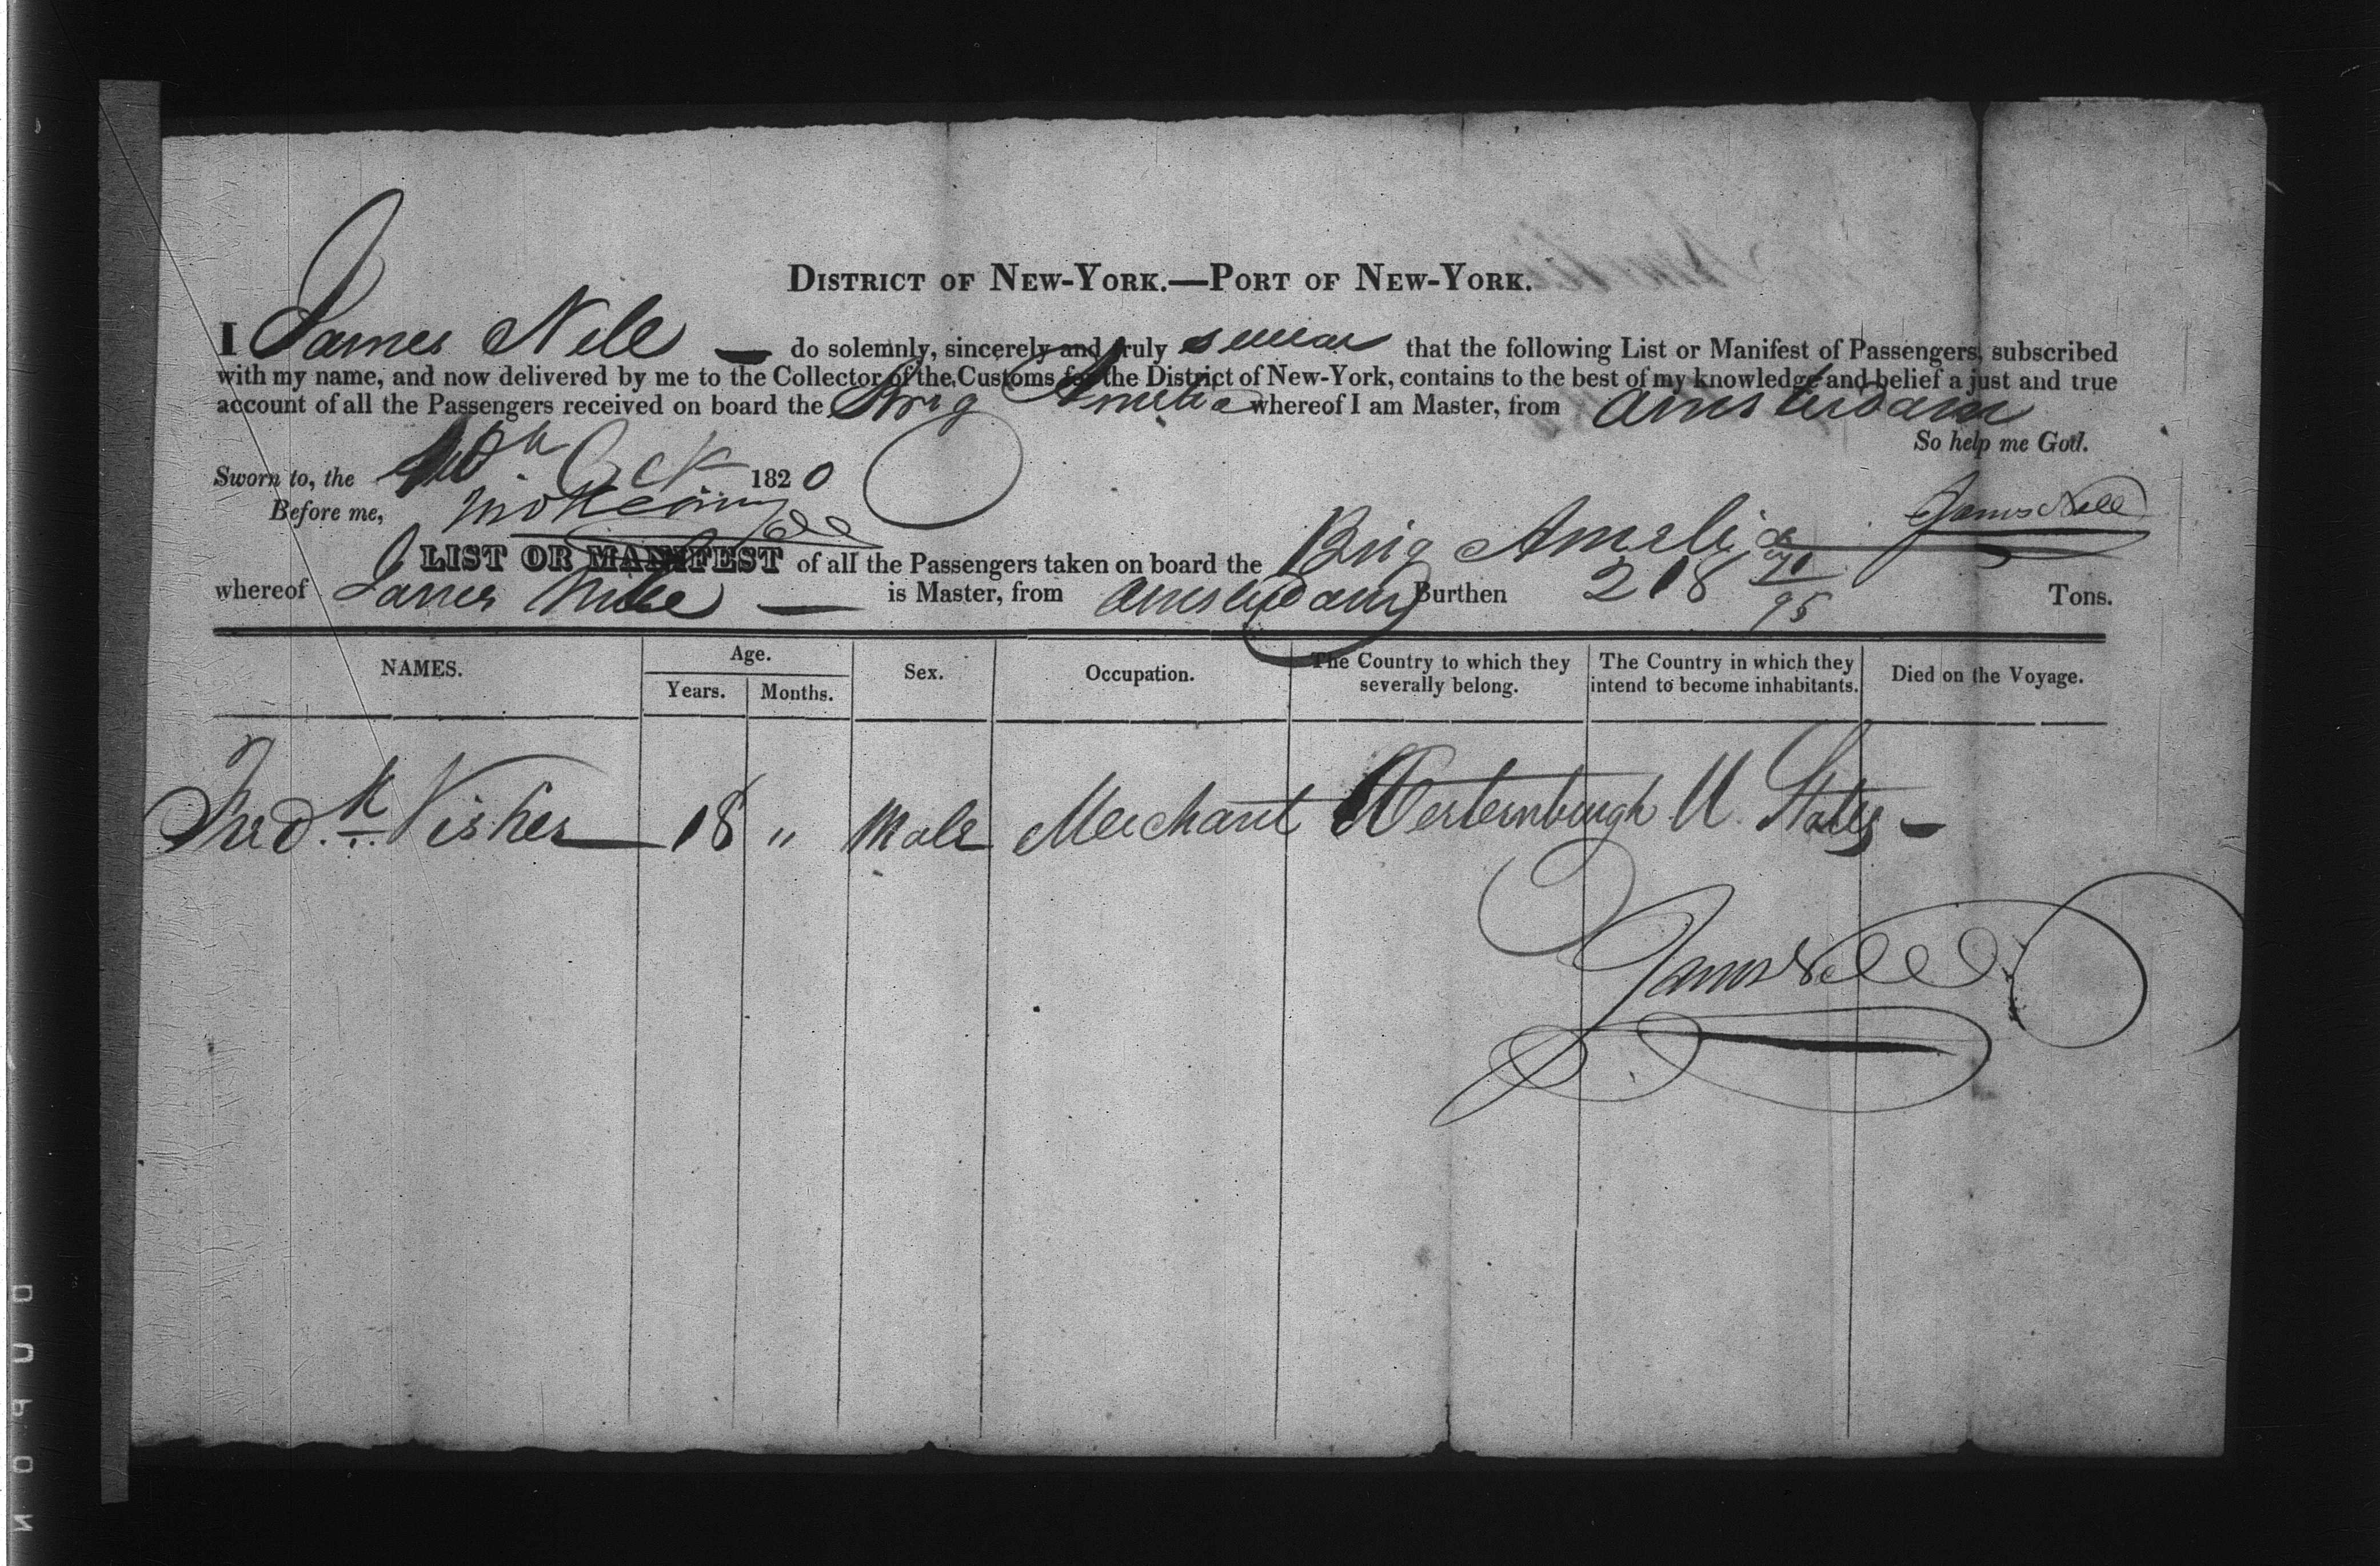 DISTRICT OF NEW-YORK.—PORT OF NEW-YORK.
I James Nell — do solemnly, sincerely and truly swear that the following List or Manifest of Passengers, subscribed
with my name, and now delivered by me to the Collector of the Customs for the District of New-York, contains to the best of my knowledge and belief a just and true
account of all the Passengers received on board the Brig Amelia whereof I am Master, from Amsterdam
So help me God.
Sworn to, the Oct 1820
Before me,
James Nell
LIST OR MANIFEST of all the Passengers taken on board the Brig Amelia
whereof James is Master, from Amsterdam Burthen 218 /95 Tons.
NAMES. Age. Years. Months. Sex. Occupation. The Country to which they severally belong. The Country in which they intend to become inhabitants. Died on the Voyage.
Fred.k Visher 18 " Male Merchant U. States —
James Nell